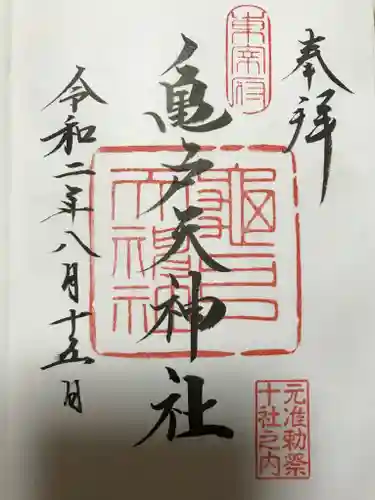 奉拝
東宰府
亀戸天神社
亀戸天神社
元准勅祭
十社之内
令和二年八月十五日